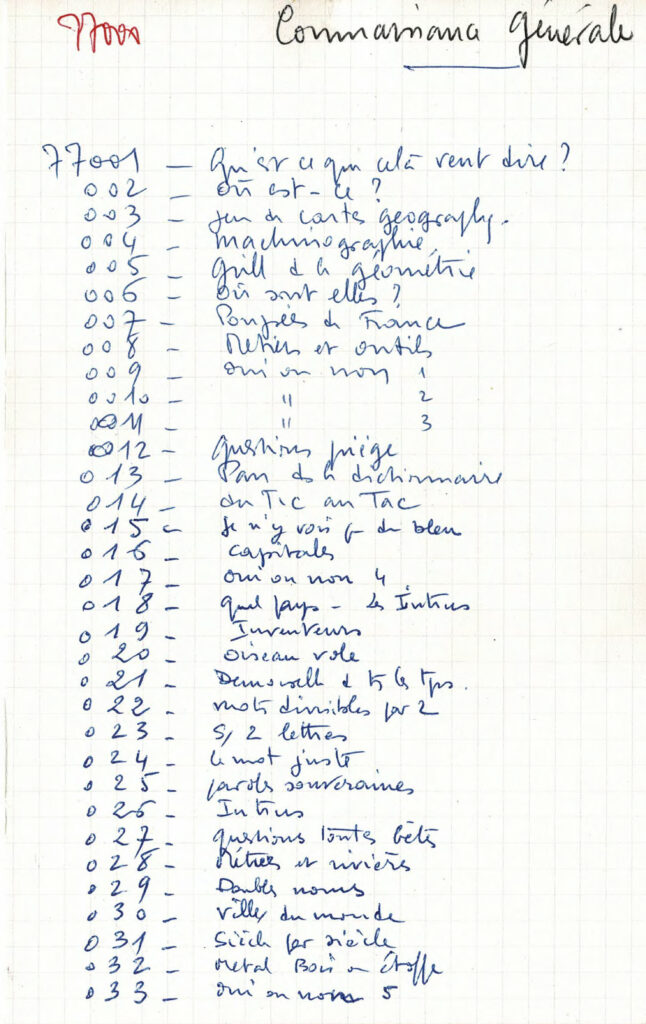 77000 Connaissance générale
77001 — Qu'est ce que celà veut dire ?
002 — Où est-ce ?
003 — jeu de cartes géography.
004 — machinographie
005 — Grill de la géométrie
006 — Où sont elles ?
007 — Poupées de France
008 — Métiers et outils
009 — oui ou non 1
0010 — " 2
0011 — " 3
0012 — questions piège
013 — Pan ds le dictionnaire
014 — du Tic au Tac
015 — Je n'y vois q du bleu
016 — capitales
017 — oui ou non 4
018 — quel pays - les Intrus
019 — Inventeurs
020 — oiseau vole
021 — Demoiselle d ts les tps.
022 — mots divisibles par 2
023 — S/ 2 lettres
024 — le mot juste
025 — paroles souveraines
026 — Intrus
027 — questions toutes bêtes
028 — Métiers et rivières
029 — Doubles noms
030 — villes du monde
031 — Siècle par siècle
032 — Métal Bois ou étoffe
033 — oui ou non 5